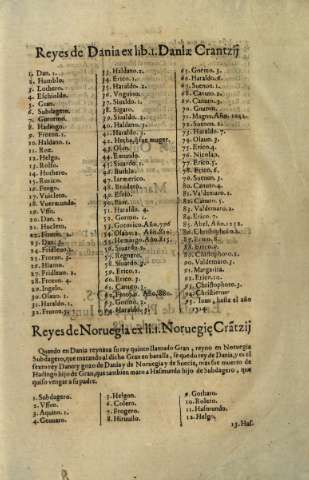 Reyes de Dania ex lib. 1. Daniæ Crantzij
1. Dan. 1.
2. Humblæ
3. Lothero.
4. Eschioldo.
5. Gran.
6. Subdagero.
8. Hadingo.
9. Frotono. 1.
10. Haldano. 1.
11. Roe.
12. Helgo.
13. Rolfo.
14. Hothero.
15. Rorico.
17. Vuicleto.
18. Vuermundo
19. Vffo.
20. Dan. 2.
21. Hucleto.
22. Frotono. 2.
23. Dan. 3.
24. Fridleuo. 1.
25. Frotono. 3.
26. Hiarno.
27. Fridleuo. 2.
28. Frotono. 4.
32. Ingelo.
30. Olauo. 1.
31. Haraldo. 1
32. Frotono. 5.
33. Haldano. 2.
34. Erico. 1.
35. Haraldo. 2.
36. Vnguino.
37. Siualdo. 1.
38. Sigaro.
39. Siualdo. 2.
40. Haldano. 3.
41. Haraldo. 3.
42. Hecha, fue muger.
43. Olon.
44. Emundo.
45. Siuardo. 1.
46. Buthlo.
47. Iarmerico.
48. Brodero.
50. Snio.
51. Haraldo. 4
52. Gormo. 1.
53. Gotrico. Año, 776
54. Olauo. 2. Año, 810
55. Hemingo. Año, 815.
56. Siuardo. 2.
57. Regnero.
58. Siuardo. 3.
59. Erico. 2.
60. Erico. 3.
61. Canuto. 1.
62. Frotono. 6. Año, 880.
63. Gormo. 2.
65. Gormo. 3.
66. Haraldo. 6.
67. Suenon. 1.
68. Canuto. 2.
69. Canuto. 3.
71. Magno. Año, 1042.
72. Suenon. 2.
73. Haraldo. 7.
74. Olauo. 3.
75. Erico. 4.
76. Nicolao.
77. Erico. 5.
78. Erico. 6.
79. Suenon. 3.
80. Canuto. 4.
81. Valdemaro. 1.
82. Canuto. 5.
83. Valdemaro. 2.
84. Erico. 7.
85. Abel, Año, 1252.
86. Christophoro. 1.
87. Erico. 8.
88. Erico. 9.
89. Christophoro. 2.
90. Valdemaro. 3.
91. Margarita.
92. Erico. 10.
93. Christophoro. 3.
94. Christierno
95. Ioan, hasta el año
Reyes de Noruegia ex li. 1. Noruegię Crātzij
Quando en Dania reynaua su rey quinto llamado Gran, reyno en Noruegia
Subdagero, que matando al dicho Gran en batalla, se quedo rey de Dania, y es el
sexto rey Dano y gozo de Dania y de Noruegia y de Suecia, mas fue muerto de
Hadingo hijo de Gran, que tambien mato a Hasmundo hijo de Subdagero, que
quiso vengar a su padre.
1. Subdagero.
2. Vffon.
3. Aquino. 1.
4. Geuuaro.
5. Helgon.
6. Colero.
7. Frogero.
9. Gotharo.
10. Rotero.
11. Hasmundo.
12. Helgo.
13. Has.